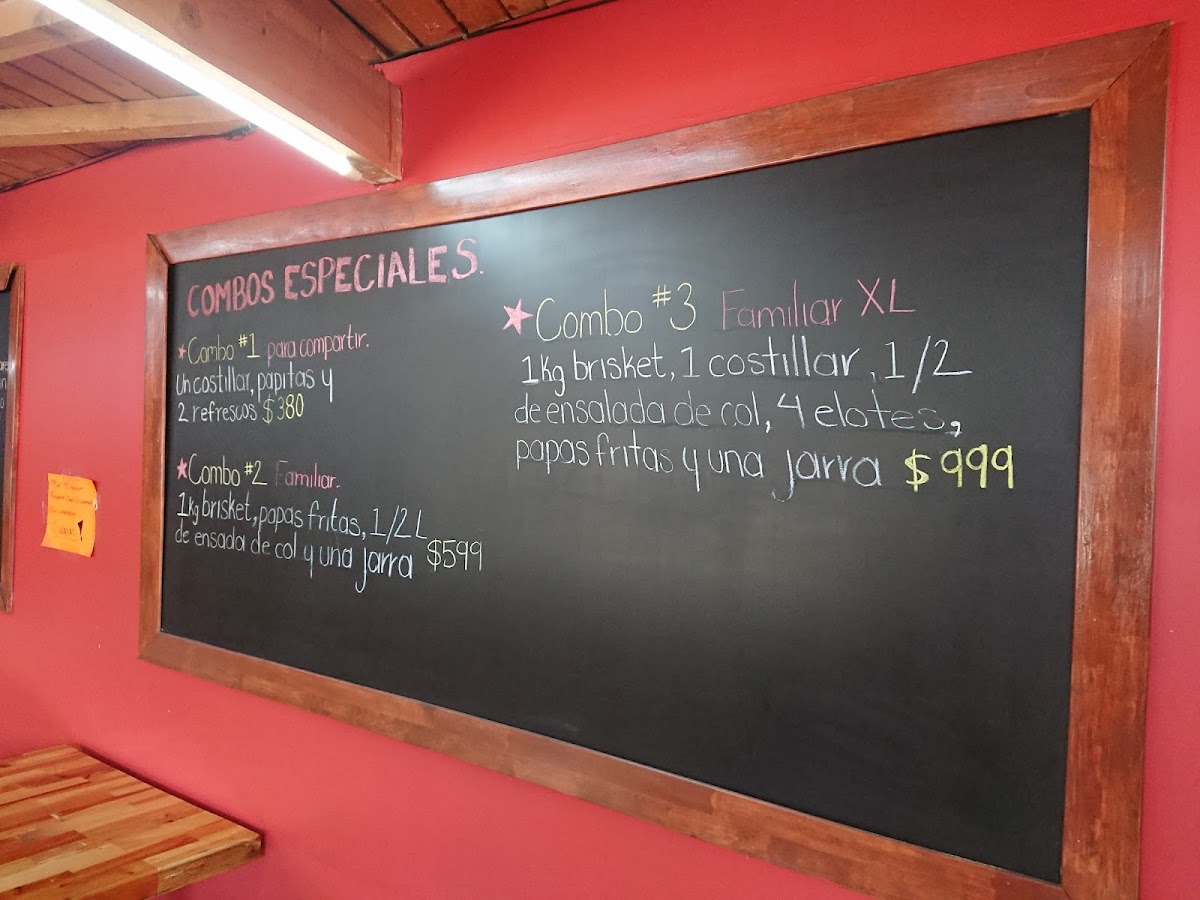 COMBOS ESPECIALES.
*Combo #1 para compartir.
Un costillar, papitas y
2 refrescos $380
*Combo #2 Familiar.
1kg brisket, papas fritas, 1/2 L
de ensada de col y una jarra $599
*Combo #3 Familiar XL
1kg brisket, 1 costillar, 1/2
de ensalada de col, 4 elotes,
papas fritas y una jarra $999